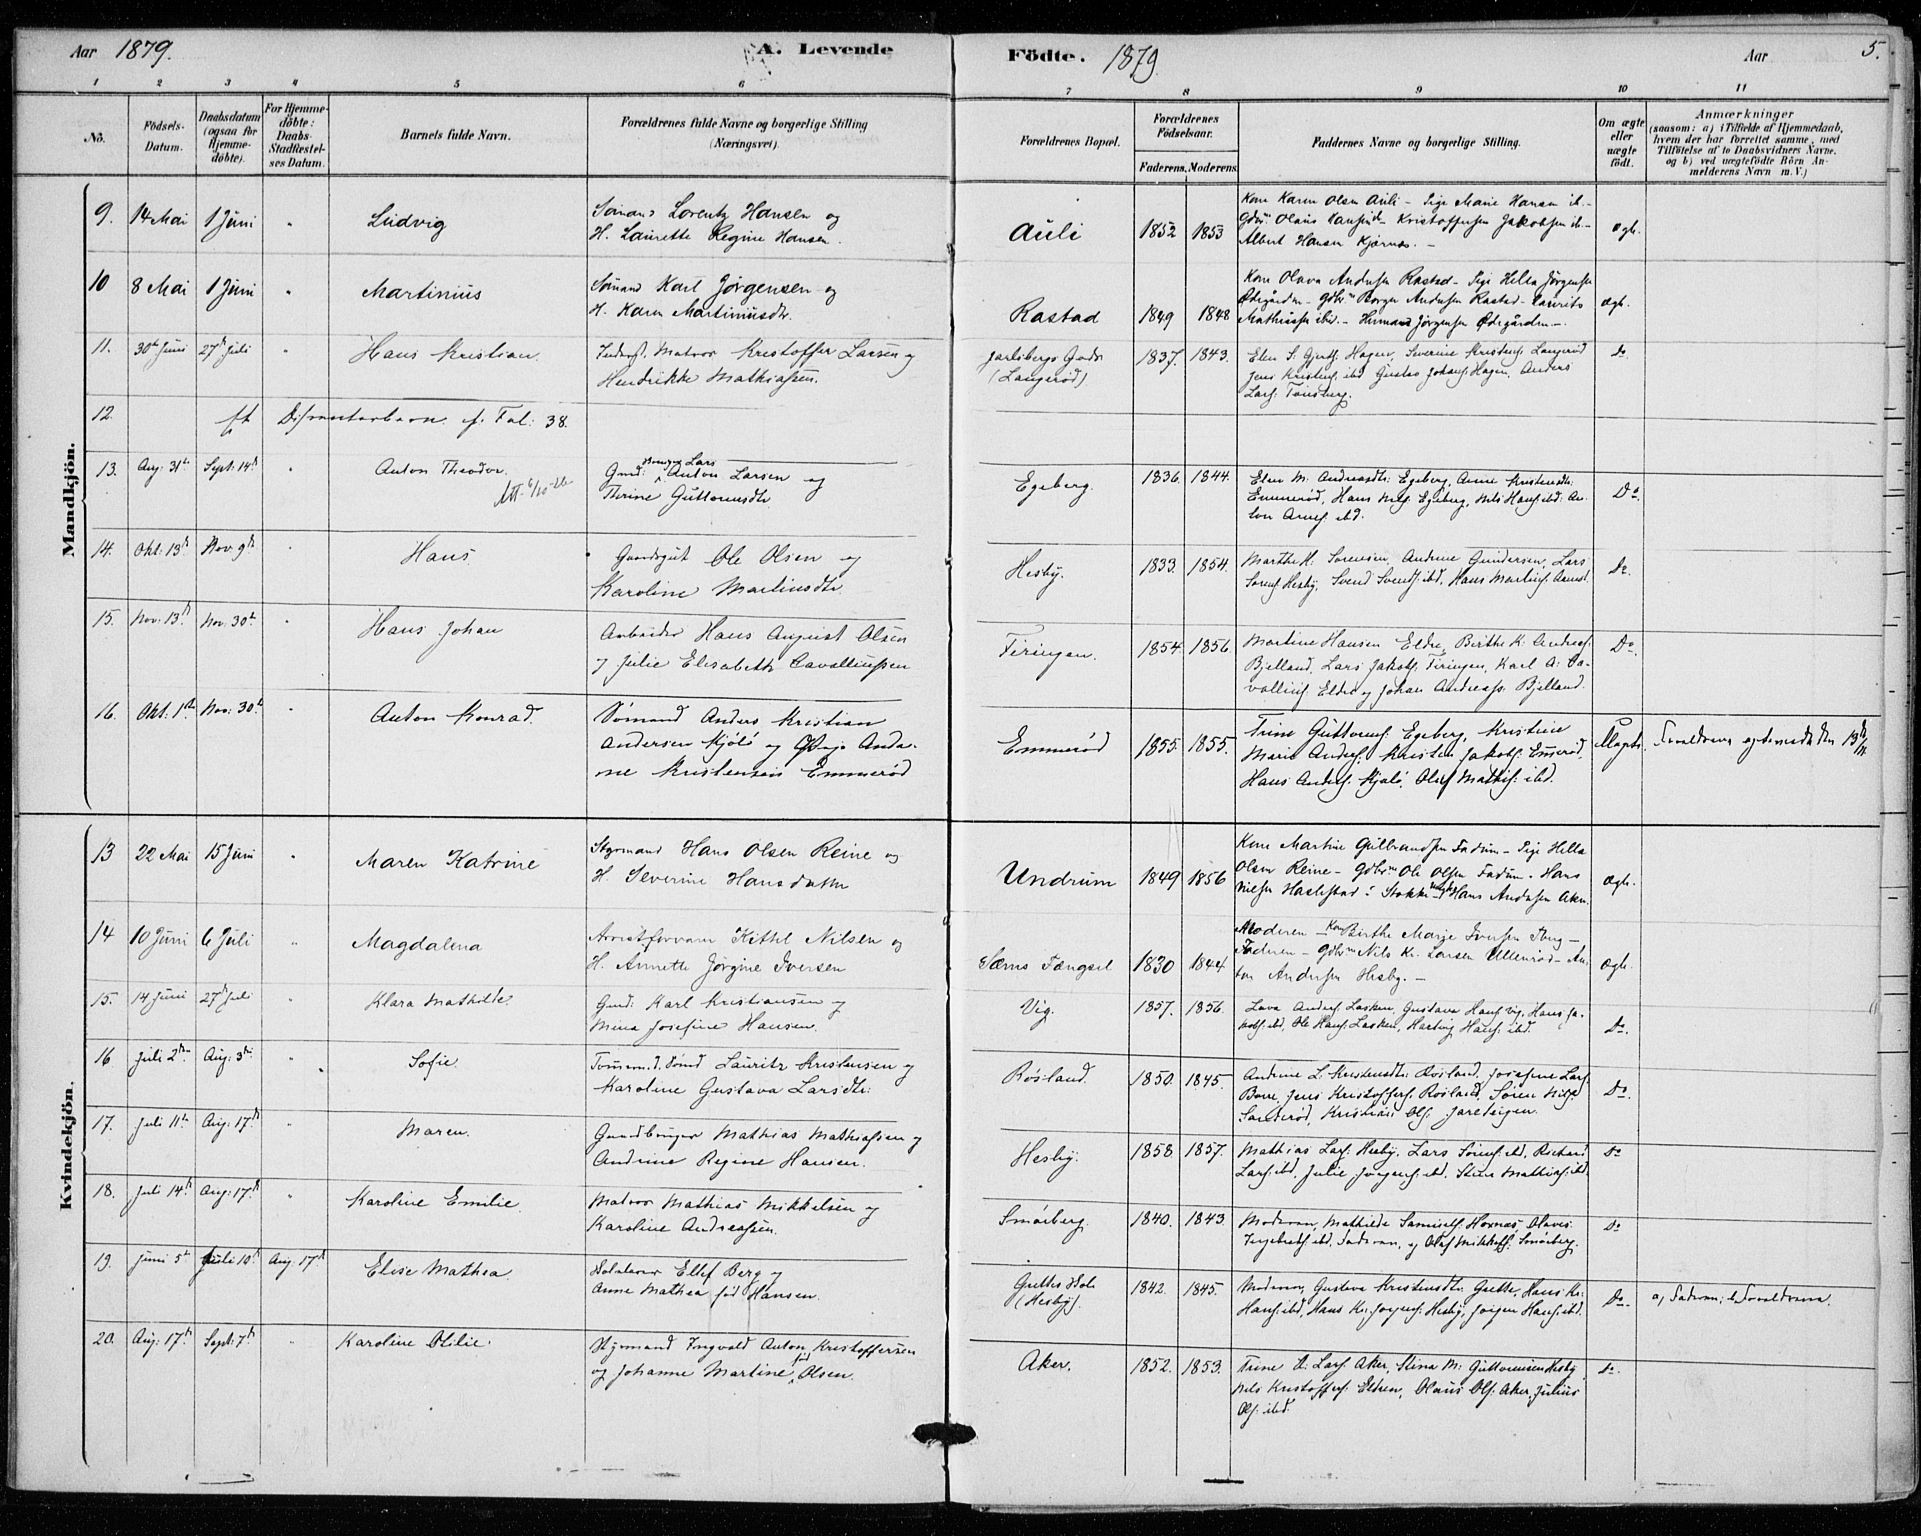 Aar 1879.
A. Levende
Födte. 1879.
Aar
5.
1 2 3 4 5 6 7 8 9 10 11
Nö.
Födsels-
Datum.
Daabsdatum
(ogsaa for
Hjemme-
döbte).
For Hjemme-
döbte:
Daabs-
Stadfæstel-
ses Datum.
Barnets fulde Navn.
Forældrenes fulde Navne og borgerlige Stilling
(Næringsvei).
Forældrenes Bopæl.
Forældrenes
Födselsaar.
Faderens. Moderens.
Faddernes Navne og borgerlige Stilling.
Om ægte
eller
uægte
födt.
Anmærkninger
(saasom: a) i Tilfælde af Hjemmedaab,
hvem der har forrettet samme, med
Tilföielse af to Daabsvidners Navne,
og b) ved uægtefödte Börn An-
melderens Navn m. V.)
Mandkjön.
9. 14 Mai 1 Juni " Ludvig
Sømand Lorentz Hansen og
H. Laurette Regine Hansen.
Auli 1852 1853
Kone Karen Olsen Auli – Pige Marie Hansen ib.–
Gdbr Olaus Hansen – Kristoffersen Jakobsen ib.–
Albert Hansen Kjærnæs. –
ægt.
10 8 Mai 1 Juni " Martinius
Sømand Karl Jørgensen og
H. Karen Martiniusdtr.
Rastad 1849 1848
Kone Olava Andersen Rastad – Pige Helda Jørgensen
Ødegården – Gdbr Borger Andersen Rastad – Laurits
Mathiassen ibd. – Herman Jørgensen Ødegården –.
ægt.
11. 30te Juni 27de Juli " Hans Kristian.
Inderst. Matros Kristoffer Larsen og
Henrikke Mathiassen.
Jarlsbergs Gods
(Langerød)
1837. 1843.
Elen S. Gjerts. Hagen, Severine Kristens. Langerød
Jens Kristens. ibd Gustav Johans. Hagen. Anders
Lars. Tønsberg.
Do
12. ft Dissenterbarn. cf. Fol: 38.
13. Aug. 31te Sept: 14de " Anton Theodor.
Att. 6/10-26
Gmd: Lars Anton Larsen og
Therine Guttormsdtr
Egeberg. 1836. 1844.
Elen M. Andreasdtr: Egeberg, Anne Kristensdtr:
Emmerød, Hans Nils. Egeberg, Nils Hans. ibd: An-
ton Arnes. ibd.
Do.
14. Okt: 13de Nov. 9de " Hans.
Gaardsgut Ole Olsen og
Karoline Martinsdtr
Hesby. 1833. 1854.
Marthe H. Sørensen, Andrine Gundersen, Lars
Sørens. Hesby, Svend Svends. ibd, Hans Martins.
Do.
15. Nov. 13de Nov. 30te " Hans Johan
Arbeider Hans August Olsen
og Julie Elisabeth Cavalliussen
Feringen. 1854. 1856.
Martine Hansen Eldre, Birthe K. Andreas.
Bjelland, Lars Jakobs. Feringen, Karl A: Ca-
vallius. Eldre og Johan Andreass. Bjelland.
Do.
16. Okt: 1ste Nov: 30te " Anton Konrad.
Sømand Anders Kristian
Andersen Hjølø og Pige Andri-
ne Kristensen Emmerød
Emmerød 1855. 1855.
Trine Guttorms. Egeberg, Kristine
Marie Anders. Kristen Jakobs. Emmerød,
Hans Anders. Hjølø, Oluf Mathis. ibd.
Uægte.
Forældrene ægteviede den 13de/12
Kvindekjön.
13 22 Mai 15 Juni " Maren Katrine
Styrmand Hans Olsen Reine og
H. Severine Hansdatter
Undrum 1849 1856
Kone Martine Gulbrandsen Fadum – Pige Hella
Olsen Reine – Gdbr Ole Olsen Fadum. Hans
Nilsen Haslestad i Stokke Hans Andersen Aker.
ægt.
14 10 Juni 6 Juli " Magdalena
Arrestforvarer Kittil Nilsen og
H. Annette Jørgine Iversen
Sæms Fængsel 1830 1844
Moderen – Kone Birthe Marje Iversen –
Faderen – Gdbr Nils Kr. Larsen Ullenrød – An-
ton Andersen Hesby. –
ægt.
15. 14 Juni 27de Juli Klara Mathilde.
Gmd: Karl Kristiansen og
Mina Josefine Hansen.
Vig. 1857. 1856.
Lava Anders. Lasken, Gustava Hans. Vig, Hans Ja-
kobs. ibd, Ole Hans. Lasken, Hartvig Hans. ibd.
Do.
16 Juli 2den Aug: 3die " Sofie.
Tømmermd. Sømd Lauritz Kristensen og
Karoline Gustava Larsdtr:
Røsland. 1850. 1845.
Andrine L. Kristensdtr: Røsland, Josefine Lars.
Borre, Jens Kristoffers. Røsland, Søren Nils.
Sanderød, Kristian Ols. Jareteigen.
Do.
17. Juli 11te Aug: 17de " Maren.
Gaardbruger Mathias Mathiassen og
Andrine Regine Hansen.
Hesby. 1858. 1857.
Mathias Lars. Hesby, Lars Sørens. ibd, Rikard
Lars. ibd, Julie Jørgens. ibd. Stina Mathias. ibd.
Do
18. Juli 14de Aug: 17de " Karoline Emilie.
Matros Mathias Mikkelsen og
Karoline Andreassen.
Smørberg. 1840. 1843.
Moderen, Mathilde Samuels. Hornæs, Olaves
Ingebrets. ibd. Faderen, og Oluf Mikkels. Smørberg.
Do
19. Juni 5te Juli 10de Aug: 17de Elise Mathea.
Skolelærer Ellef Berg og
Anne Mathea fød Hansen.
Grettes Skole
(Hesby).
1842. 1845.
Moderen, Gustava Kristensdtr: Grette, Hans Kr:
Hans. ibd, Hans Kr. Jørgens. Hesby, Jørgen Hans. ibd.
Do.
a, Faderen; b, Forældrene.
20. Aug: 17de Sept: 7de " Karoline Otilie.
Styrmand Ingvald Anton Kristoffersen
og Johanne Martine fød Olsen.
Aker. 1852. 1853.
Trine H. Lars. Aker, Stina M: Guttormsen Hesby
Nils Kristoffers. Eldren, Olaus Ols. Aker, Julius
Ols. ibd.
Do.